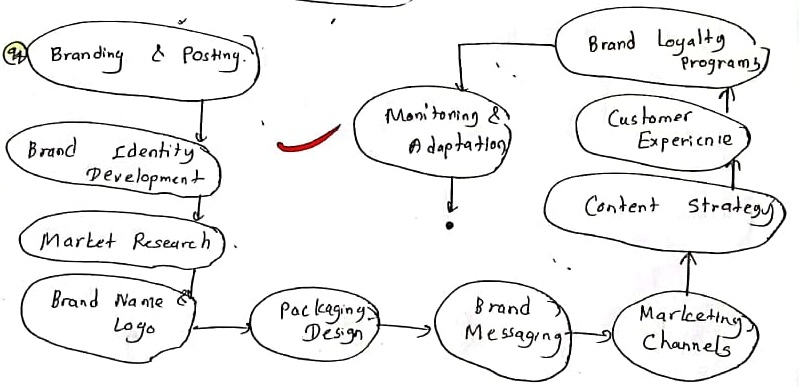 Branding & Posting.
Brand Identity
Development
Market Research.
Brand Name &
Logo
Packaging
Design
Brand
Messaging
Marketing
Channels
Content Strategy
Customer
Experience
Brand Loyalty
Programs
Monitoring &
Adaptation